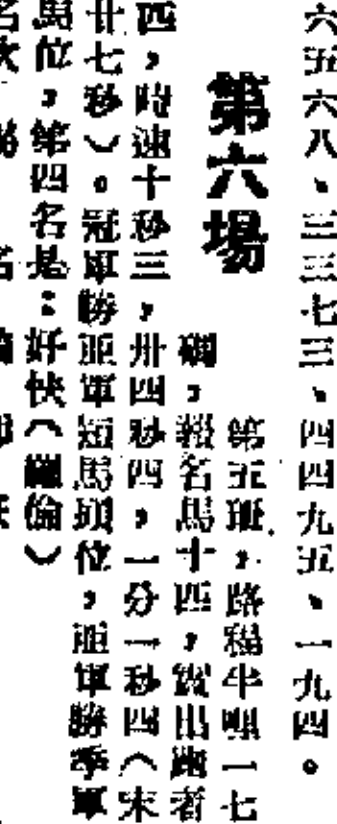 六五六八、三三七三、四四九五、一九四。
第六場
第五班，路程半哩一七
碼，報名馬十四，實出跑者
四，時速十秒三，卅四秒四，一分一秒四（宋
廿七秒）。冠軍勝亞軍短馬頭位，亞軍勝季軍
馬位，第四名是：好快（羅倫）